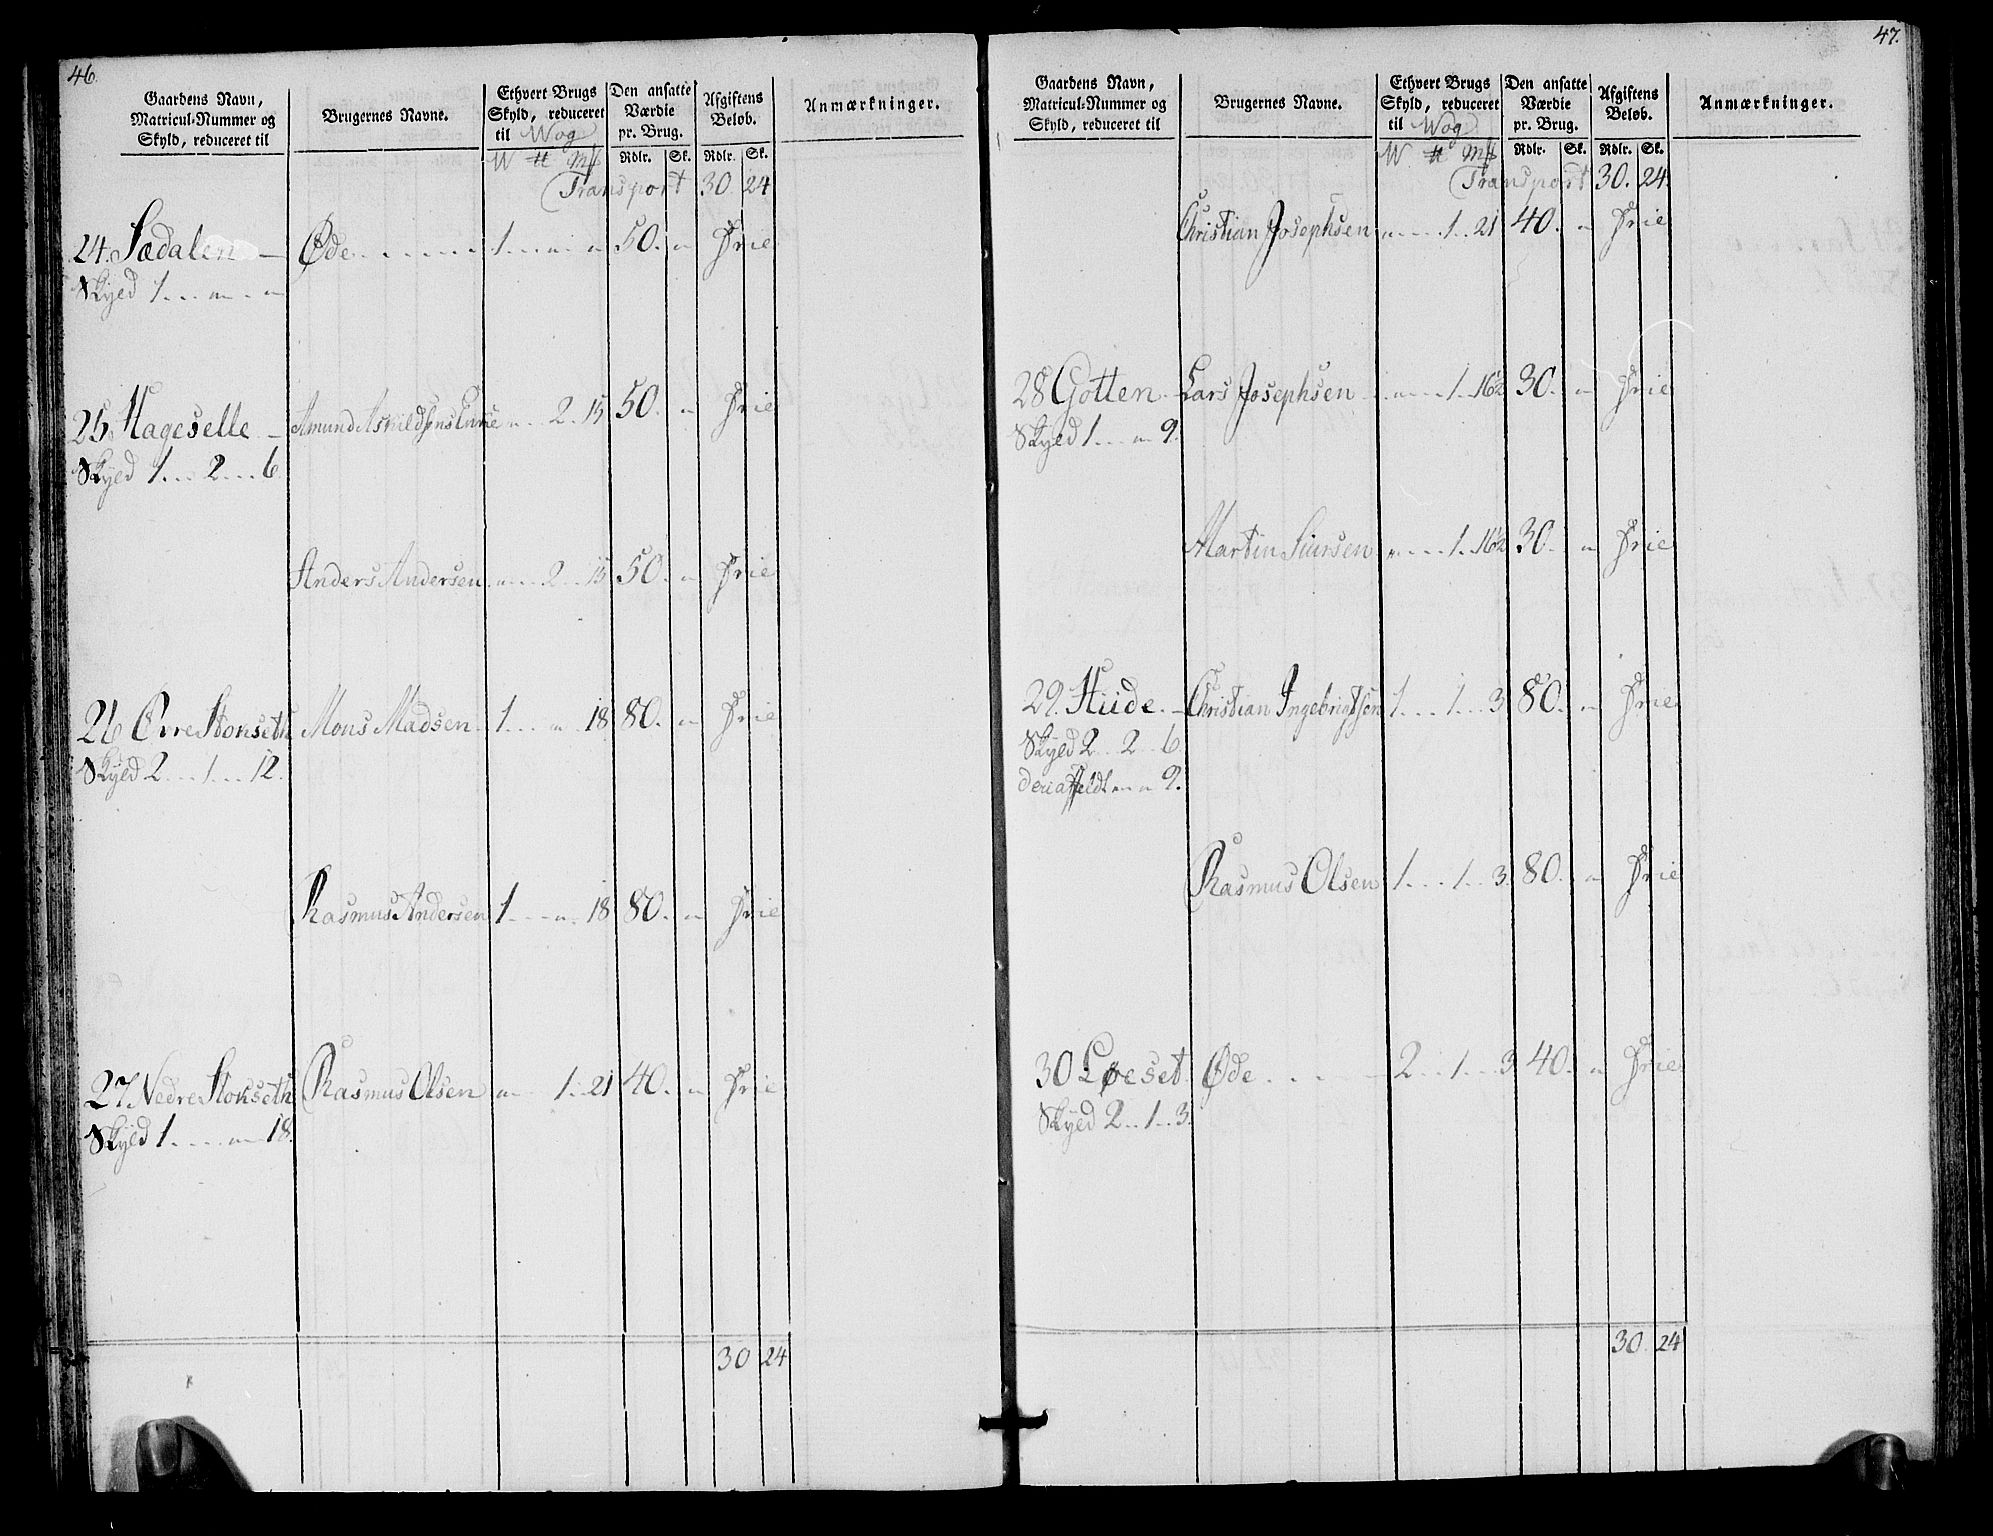 46.
Gaardens Navn, Matricul-Nummer og Skyld, reduceret til
Brugernes Navne.
Ethvert Brugs Skyld, reduceret til Wog
Den ansatte Værdie pr. Brug.
Afgiftens Beløb.
Anmærkninger.
W ℔ Mk Rdlr. Sk. Rdlr. Sk.
Transport 30. 24
24. Sædalen Øde 1 . . . „ . „ 50. „ Frie
Skyld 1 . . . „ . . „
25. Hageselle Amund Enke „ . . 2 . 15 50. „ Frie
Skyld 1 . . . 2 . . . 6
Anders Andersen „ . . . 2 . . 15 50. „ Frie
26 Øvre Stonseth Mons Madsen 1 . . . „ . 18 80. „ Frie
Skyld 2 . . . 1 . . . 12.
Rasmus Andersen 1 . . . „ . 18 80. „ Frie
27 Nedre Stokseth Rasmus Olsen „ 1 . . 21 40. „ Frie
Skyld 1 . . . . „ 18.
30 24
47.
Gaardens Navn, Matricul-Nummer og Skyld, reduceret til
Brugernes Navne.
Ethvert Brugs Skyld, reduceret til Wog
Den ansatte Værdie pr. Brug.
Afgiftens Beløb.
Anmærkninger.
W ℔ Mk Rdlr. Sk. Rdlr. Sk.
Transport 30. 24.
Christian Josephsen „ . . . 1 . . 21 40. „ Frie
28 Gotten Lars Josephsen „ . . . 1 . 16½ 30. „ Frie
Skyld 1 . . . „ 9.
Martin Siursen „ . . . 1 . 16½ 30. „ Frie
29. Hiide Christian Ingebrigtsen 1 . . . 1 . . 3 80. „ Frie
Skyld 2 . . 2 . . 6
„ „ 9.
Rasmus Olsen 1 . . . 1 . . 3. 80. „ Frie
30 Løeset Øde 2 . . 1 . . 3 40. „ Frie
Skyld 2 . . 1 . . 3.
30 24